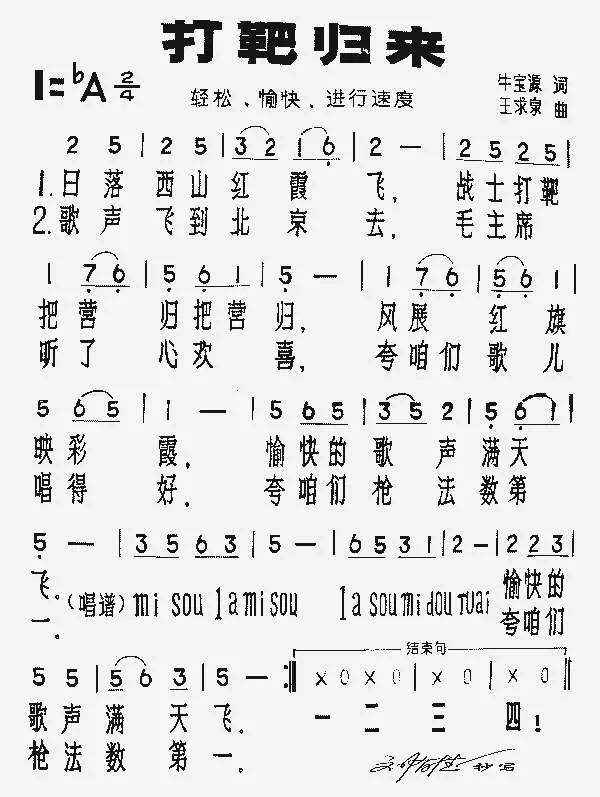 打靶归来
1=ᵇA 2/4
轻松、愉快、进行速度
牛宝源 词
王求泉 曲
2 5 | 2 5 | 3 2 1 6 | 2 — | 2 5 2 5 |
1.日落 西山 红霞 飞, 战士打靶
2.歌声 飞到 北京 去, 毛主席
1 7 6 | 5 6 1 | 5 — | 1 7 6 | 5 6 1 |
把营 归把营 归, 风展 红旗
听了 心欢 喜, 夸咱们 歌儿
5 6 5 | 1 — | 5 6 5 | 3 5 2 | 5 5 6 1 |
映彩 霞, 愉快的 歌声 满天
唱得 好, 夸咱们 枪法 数第
5 — | 3 5 6 3 | 5 — | 6 5 3 1 | 2 — | 2 2 3 |
飞。(唱谱) mi sou la mi sou la sou mi dou ruai 愉快的
一。 夸咱们
结束句
5 5 | 5 6 3 | 5 — :‖ X 0 | X 0 | X 0 | X 0 ‖
歌声 满天 飞. 一 二 三 四!
枪法 数第 一.
抄写